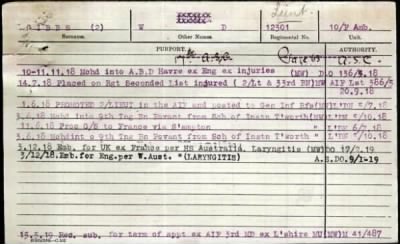 Lieut.
GIBBS (2) W D 12301 10/F Amb.
Surname. Other Names Regimental No. Unit.
PURPORT.
A.S.C.
10-11.11.18 Mohd into A.B.D Havre ex Eng ex injuries (MW) D.O 136/3.18
14.7.18 Placed on Rgt Seconded List injured ( 2/Lt A 33rd BN) MW AIF Lst 386/5
20.9.18
1.6.18 PROMOTED 2/LIEUT in the AIF and posted to Gen Inf Rfs (MW) L'DN 5/7.18
3.6.18 Mohd into 9th Tng Bn Fovant from Sch of Instn T'worth (M) L'DN 5/10.18
11.6.18 Proc O/S to France via S'mpton " L'DN 6/7.18
3.6.18 Mohd into 9th Tng Bn Fovant from Sch of Instn T'worth " L'DN 5/7.18
3.12.18 Emb. for UK ex France per HS Australia. Laryngitis (MW) DO 17/7.19
3/12/18.Emb.for Eng.per W.Aust. "(LARYNGITIS) A.S.DO.9/1-19
15.5.19 Rec. sub. for term of appt ex AIF 3rd MD ex L'shire MU (MW) M 41/487